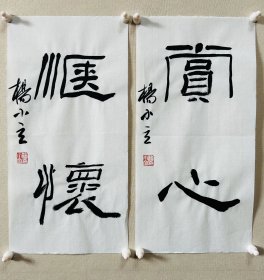 賞心
楊小立
愜懷
楊小立